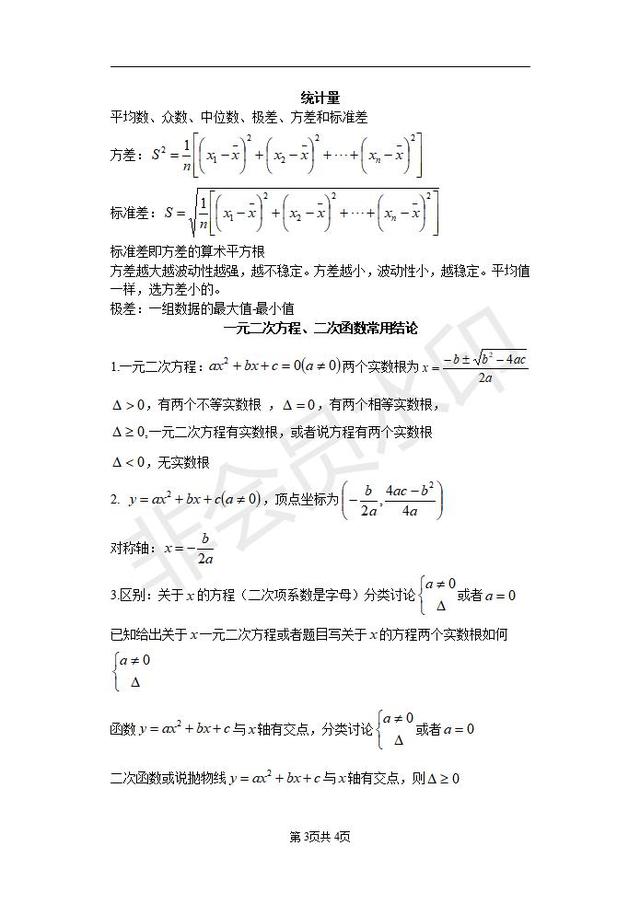 统计量
平均数、众数、中位数、极差、方差和标准差
方差：S² = 1/n[(x₁ − x̄)² + (x₂ − x̄)² + ⋯ + (xₙ − x̄)²]
标准差：S = √(1/n[(x₁ − x̄)² + (x₂ − x̄)² + ⋯ + (xₙ − x̄)²])
标准差即方差的算术平方根
方差越大越波动性越强，越不稳定。方差越小，波动性小，越稳定。平均值
一样，选方差小的。
极差：一组数据的最大值-最小值
一元二次方程、二次函数常用结论
1.一元二次方程：ax² + bx + c = 0(a ≠ 0)两个实数根为 x = (−b ± √(b² − 4ac))/2a
Δ > 0，有两个不等实数根 ，Δ = 0，有两个相等实数根，
Δ ≥ 0,一元二次方程有实数根，或者说方程有两个实数根
Δ < 0，无实数根
2. y = ax² + bx + c(a ≠ 0)，顶点坐标为(−b/2a, (4ac − b²)/4a)
对称轴：x = −b/2a
3.区别：关于 x 的方程（二次项系数是字母）分类讨论{a ≠ 0 Δ 或者 a = 0
已知给出关于 x 一元二次方程或者题目写关于 x 的方程两个实数根如何
{a ≠ 0 Δ
函数 y = ax² + bx + c 与 x 轴有交点，分类讨论{a ≠ 0 Δ 或者 a = 0
二次函数或说抛物线 y = ax² + bx + c 与 x 轴有交点，则 Δ ≥ 0
非会员水印
第 3页共 4页